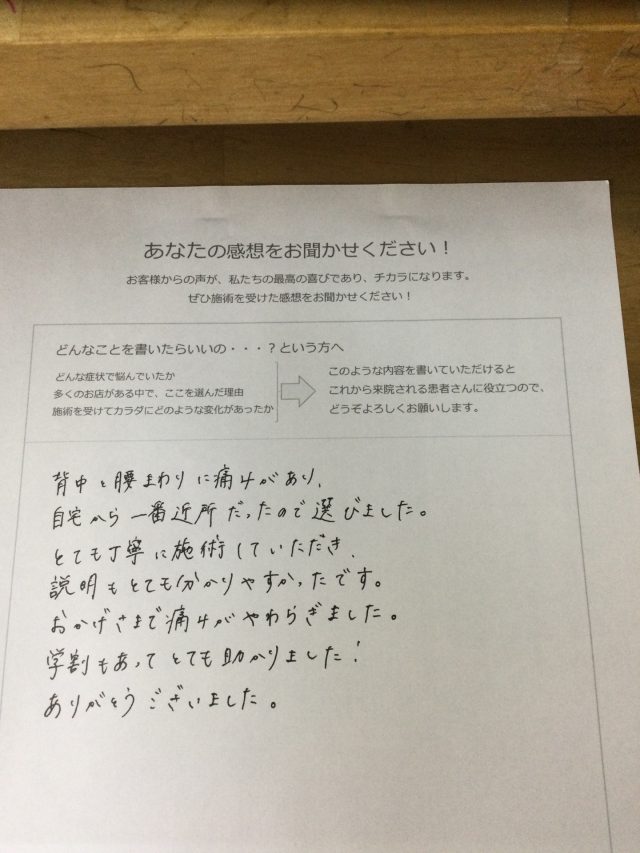 あなたの感想をお聞かせください！
お客様からの声が、私たちの最高の喜びであり、チカラになります。
ぜひ施術を受けた感想をお聞かせください！
どんなことを書いたらいいの・・・？という方へ
どんな症状で悩んでいたか
多くのお店がある中で、ここを選んだ理由
施術を受けてカラダにどのような変化があったか
このような内容を書いていただけると
これから来院される患者さんに役立つので、
どうぞよろしくお願いします。
背中と腰まわりに痛みがあり、
自宅から一番近所だったので選びました。
とても丁寧に施術していただき、
説明もとても分かりやすかったです。
おかげさまで痛みがやわらぎました。
学割もあってとても助かりました！
ありがとうございました。